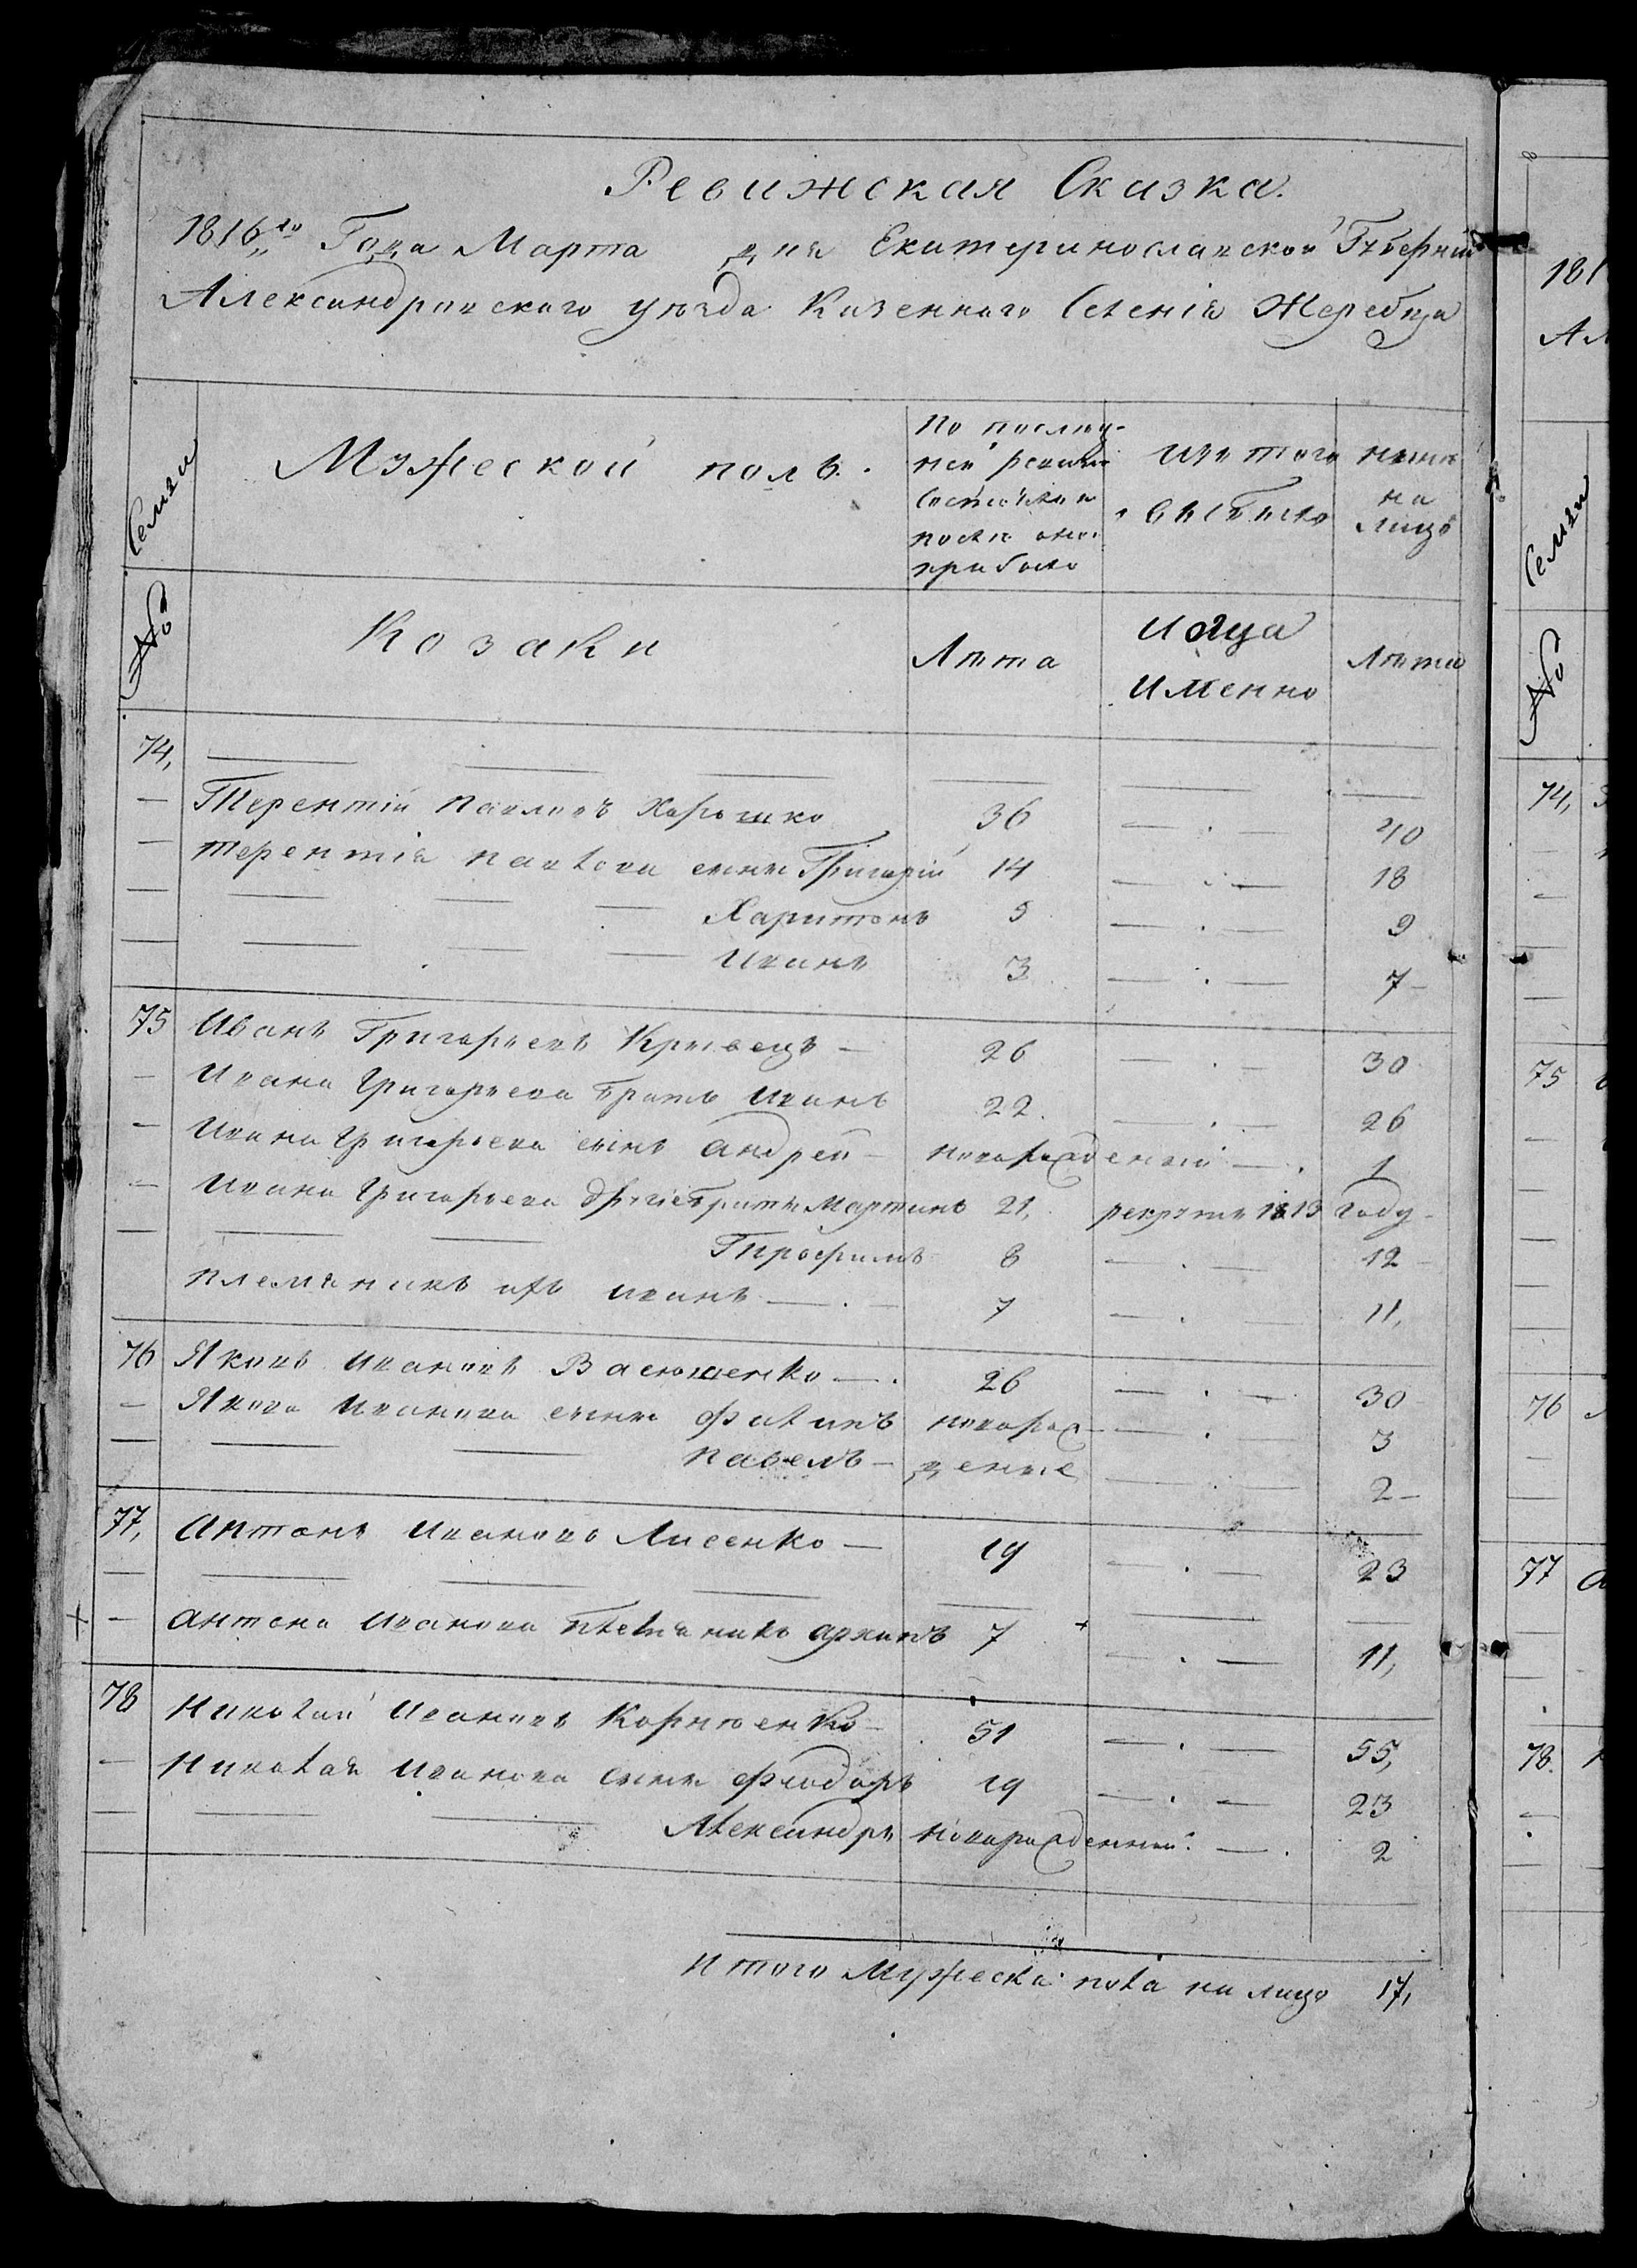 Ревижская Сказка.
1816го Года Марта дня Екатеринославской Губерніи
Александровского уезда Казенного Селенія Жеребца
№ Семьи
Мужеской полъ.
По послед-
ней ревизіи
состояло и
после оной
прибыло
Изъ того
выбыло
ныне
на
лицо
Козаки
Лѣта
Когда
Именно
Лѣта
74,
Терентій Павловъ Харошко 36 40
Терентія Павлова сынъ Григорій 14 18
Харитонъ 5 9
Иванъ 3 7
75 Иванъ Григорьевъ Кривецъ 26 30
Ивана Григорьева братъ Иванъ 22 26
Ивана Григорьева сынъ Андрей новорожденный 1
Ивана Григорьева другіе братья Мартинъ 21, рекрутъ 1813 году
Трофимъ 8 12
племяникъ ихъ Иванъ 7 11,
76 Яковъ Ивановъ Васюшенко 26 30
Якова Иванова сыны Филипъ новорож- 3
Павелъ дение 2
77, Антонъ Ивановъ Лисенко 19 23
Антона Иванова племяникъ архипъ 7 + 11,
78 Николай Ивановъ Корниенко 51 55,
Николая Иванова сыны Фиодоръ 19 23
Александръ новорожденный 2
Итого Мужеска пола на лицо 17,
181
Семьи
№
74,
75
76
77
78.